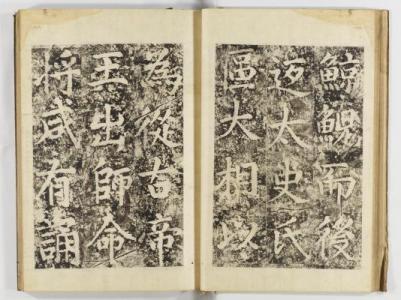 鯨鯢而後
迺太史氏
區大相以
為從古帝
王出師命
將咸有誦